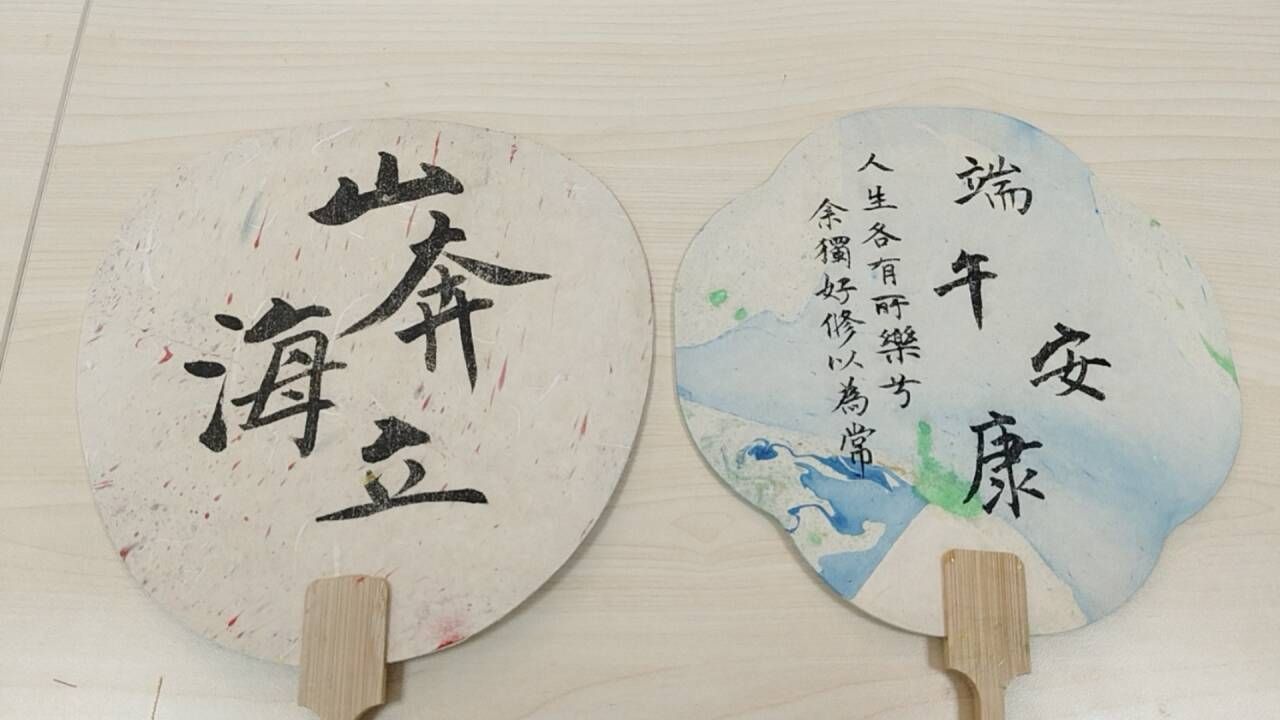 山奔
海立
端午
安康
人生各有所樂兮
余獨好修以為常